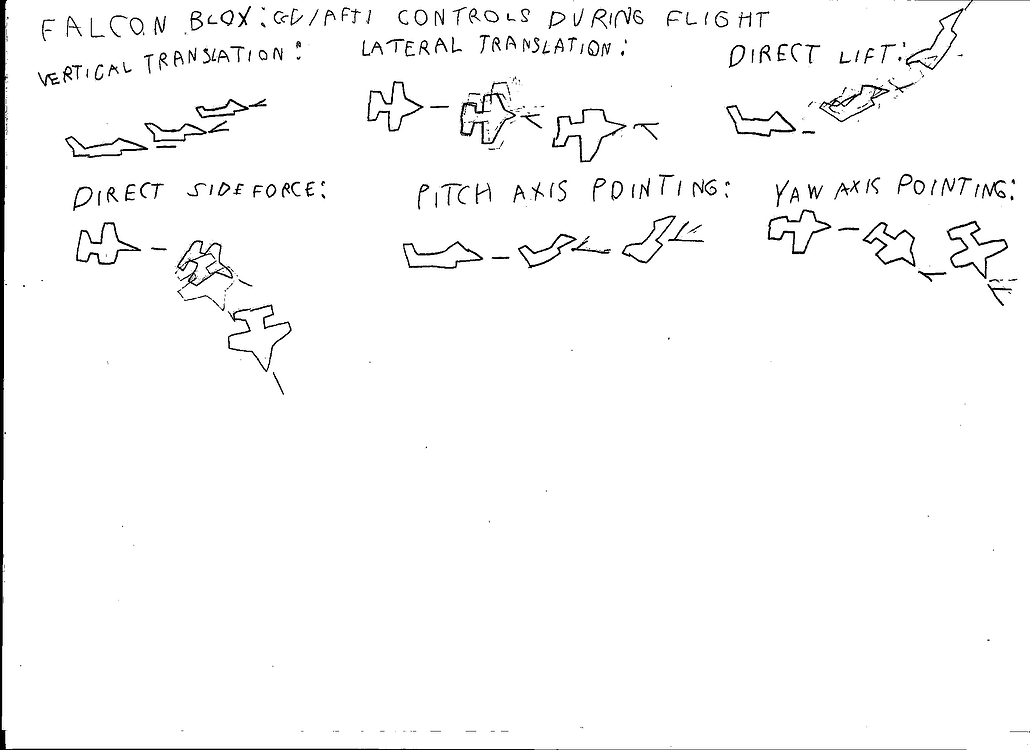 FALCON BLOX: GD/AFTI CONTROLS DURING FLIGHT
VERTICAL TRANSLATION:
LATERAL TRANSLATION:
DIRECT LIFT:
DIRECT SIDEFORCE:
PITCH AXIS POINTING:
YAW AXIS POINTING: